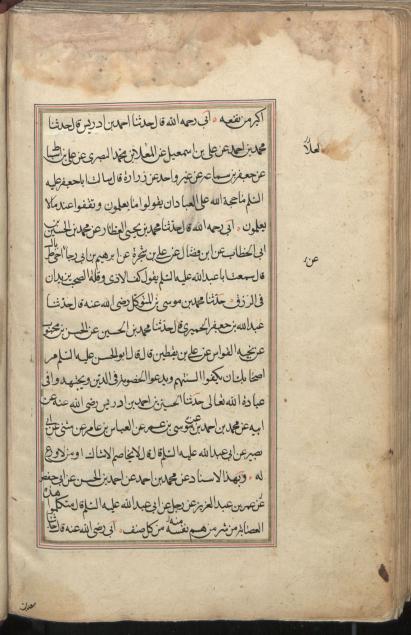 اكبر من نفعه ابى رحمه الله قال حدثنا احمد بن ادريس قال حدثنا
محمد بن احمد عن على بن اسمعيل عن المعلا بن محمد البصرى عن على بن
العلا
عن جعفر بن سماعه عن غير واحد عن زرارة قال سالت ابا جعفر عليه
السلم ما حجة الله على العباد ان يقولوا ما يعلمون ويقفوا عند ما لا
يعلمون ابى رحمه الله قال حدثنا محمد بن يحيى العطار عن محمد بن الحسين بن
ابى الخطاب عن ابن فضال عن على بن شجرة عن ابرهيم بن ابى رجا
عن
قال سمعت ابا عبد الله عليه السلم يقول كف الاذى وقلة الصخب يزيدان
فى الرزق حدثنا محمد بن موسى بن المتوكل رضى الله عنه قال حدثنا
عبد الله بن جعفر الحميرى قال حدثنا محمد بن الحسين عن الحسن بن محبوب
عن نجيه القواس عن على بن يقطين قال قال ابو الحسن عليه السلم مر
اصحابك ان يكفوا السنتهم ويدعوا الخصومه فى الدين ويجتهدوا فى
عبادة الله تعالى حدثنا الحسين بن احمد بن ادريس رضى الله عنه عن
ابيه عن محمد بن احمد عن موسى بن عمر عن العباس بن عامر عن مثنى عن ابى
بصير عن ابى عبد الله عليه السلم قال قال لا يخاصم الا شاك او من لا ورع
له وبهذا الاسناد عن محمد بن احمد عن احمد بن الحسن عن ابى حفص
عن عمر بن عبد العزيز عن رجل عن ابى عبد الله عليه السلم قال متكلموا هذه
العصابة من شر من هم منه من كل صنف ابى رضى الله عنه قال حدثنا